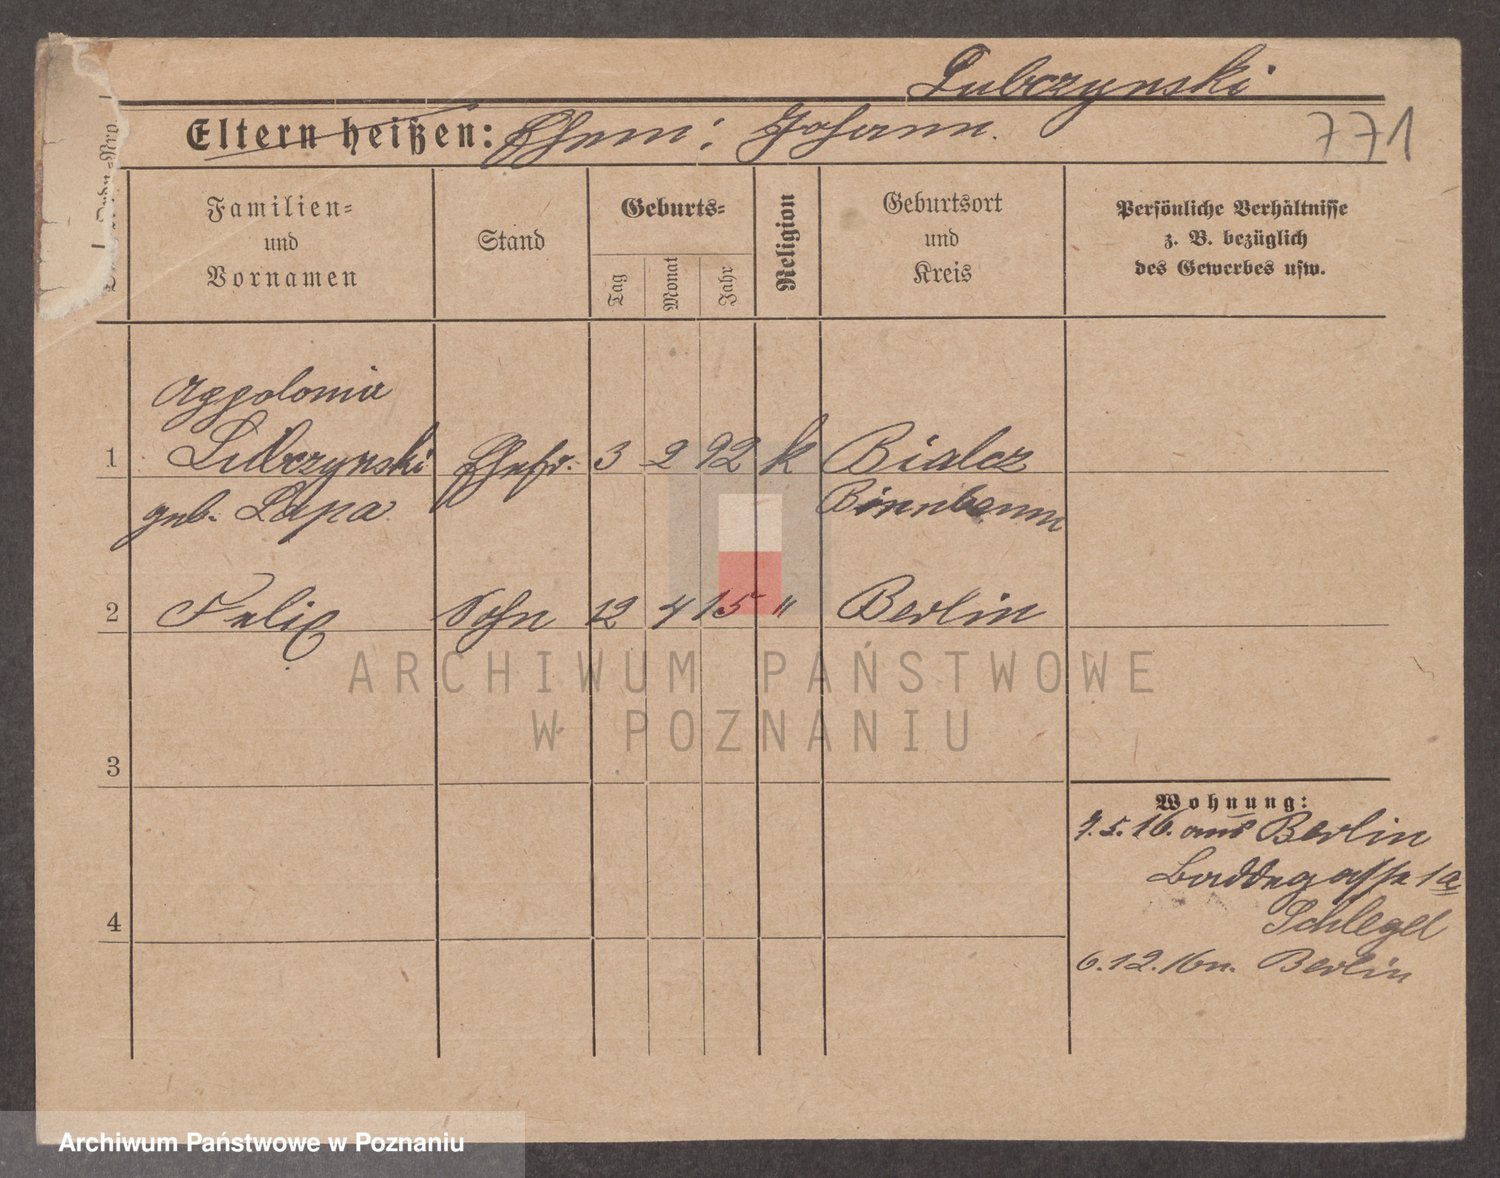 Lubczynski
Eltern heißen: Ehem: Johann.
771
Familien=
und
Vornamen
Stand
Geburts=
Tag
Monat
Jahr
Religion
Geburtsort
und
Kreis
Persönliche Verhältnisse
z. B. bezüglich
des Gewerbes usw.
Appolonia
1 Lubczynski Ehefr. 3 2 92 k Bialcz
geb. Lapa Birnbaum
2 Felix Sohn 12 4 15 " Berlin
3
4
Wohnung:
7.5.16. aus Berlin
Baddegasse 1a
Schlegel
6.12.16 n. Berlin
ARCHIWUM PAŃSTWOWE
W POZNANIU
Archiwum Państwowe w Poznaniu